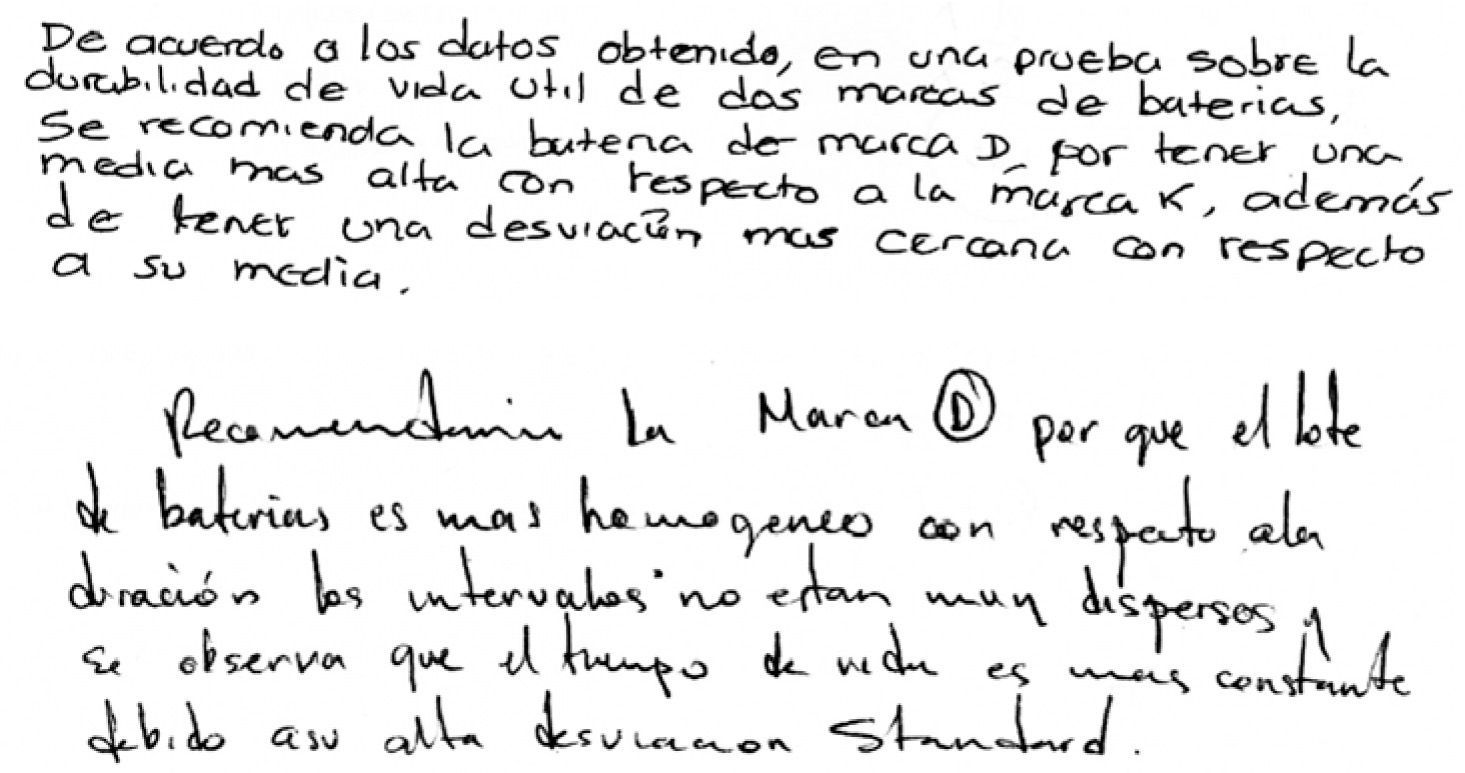 De acuerdo a los datos obtenido, en una prueba sobre la
durabilidad de vida util de dos marcas de baterias,
Se recomienda la bateria de marca D, por tener una
media mas alta con respecto a la marca K, además
de tener una desviación mas cercana con respecto
a su media.
Recomendaria La Marca D por que el lote
de baterias es mas homogeneo con respecto ala
duración los intervalos no estan muy dispersos y
se observa que el tiempo de vida es mas constante
debido asu alta desviacion Standard.